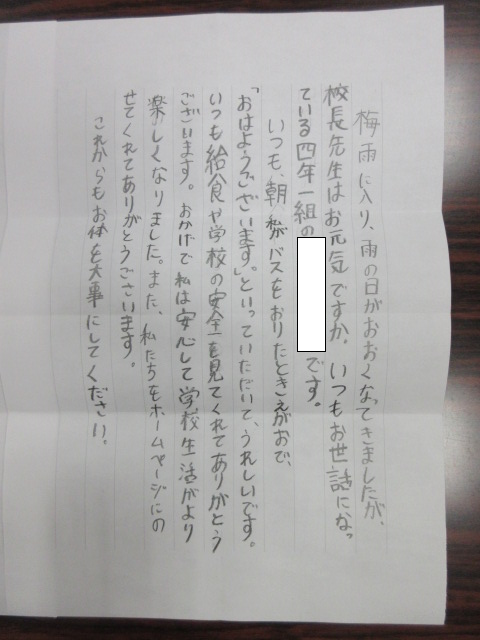 梅雨に入り、雨の日がおおくなってきましたが、
校長先生はお元気ですか。いつもお世話になっ
ている四年一組の です。
いつも、朝、私がバスをおりたときえがおで、
「おはようございます。」といっていただいて、うれしいです。
いつも給食や学校の安全を見てくれてありがとう
ございます。おかげで私は安心して学校生活がより
楽しくなりました。また、私たちをホームページにの
せてくれてありがとうございます。
これからもお体を大事にしてください。